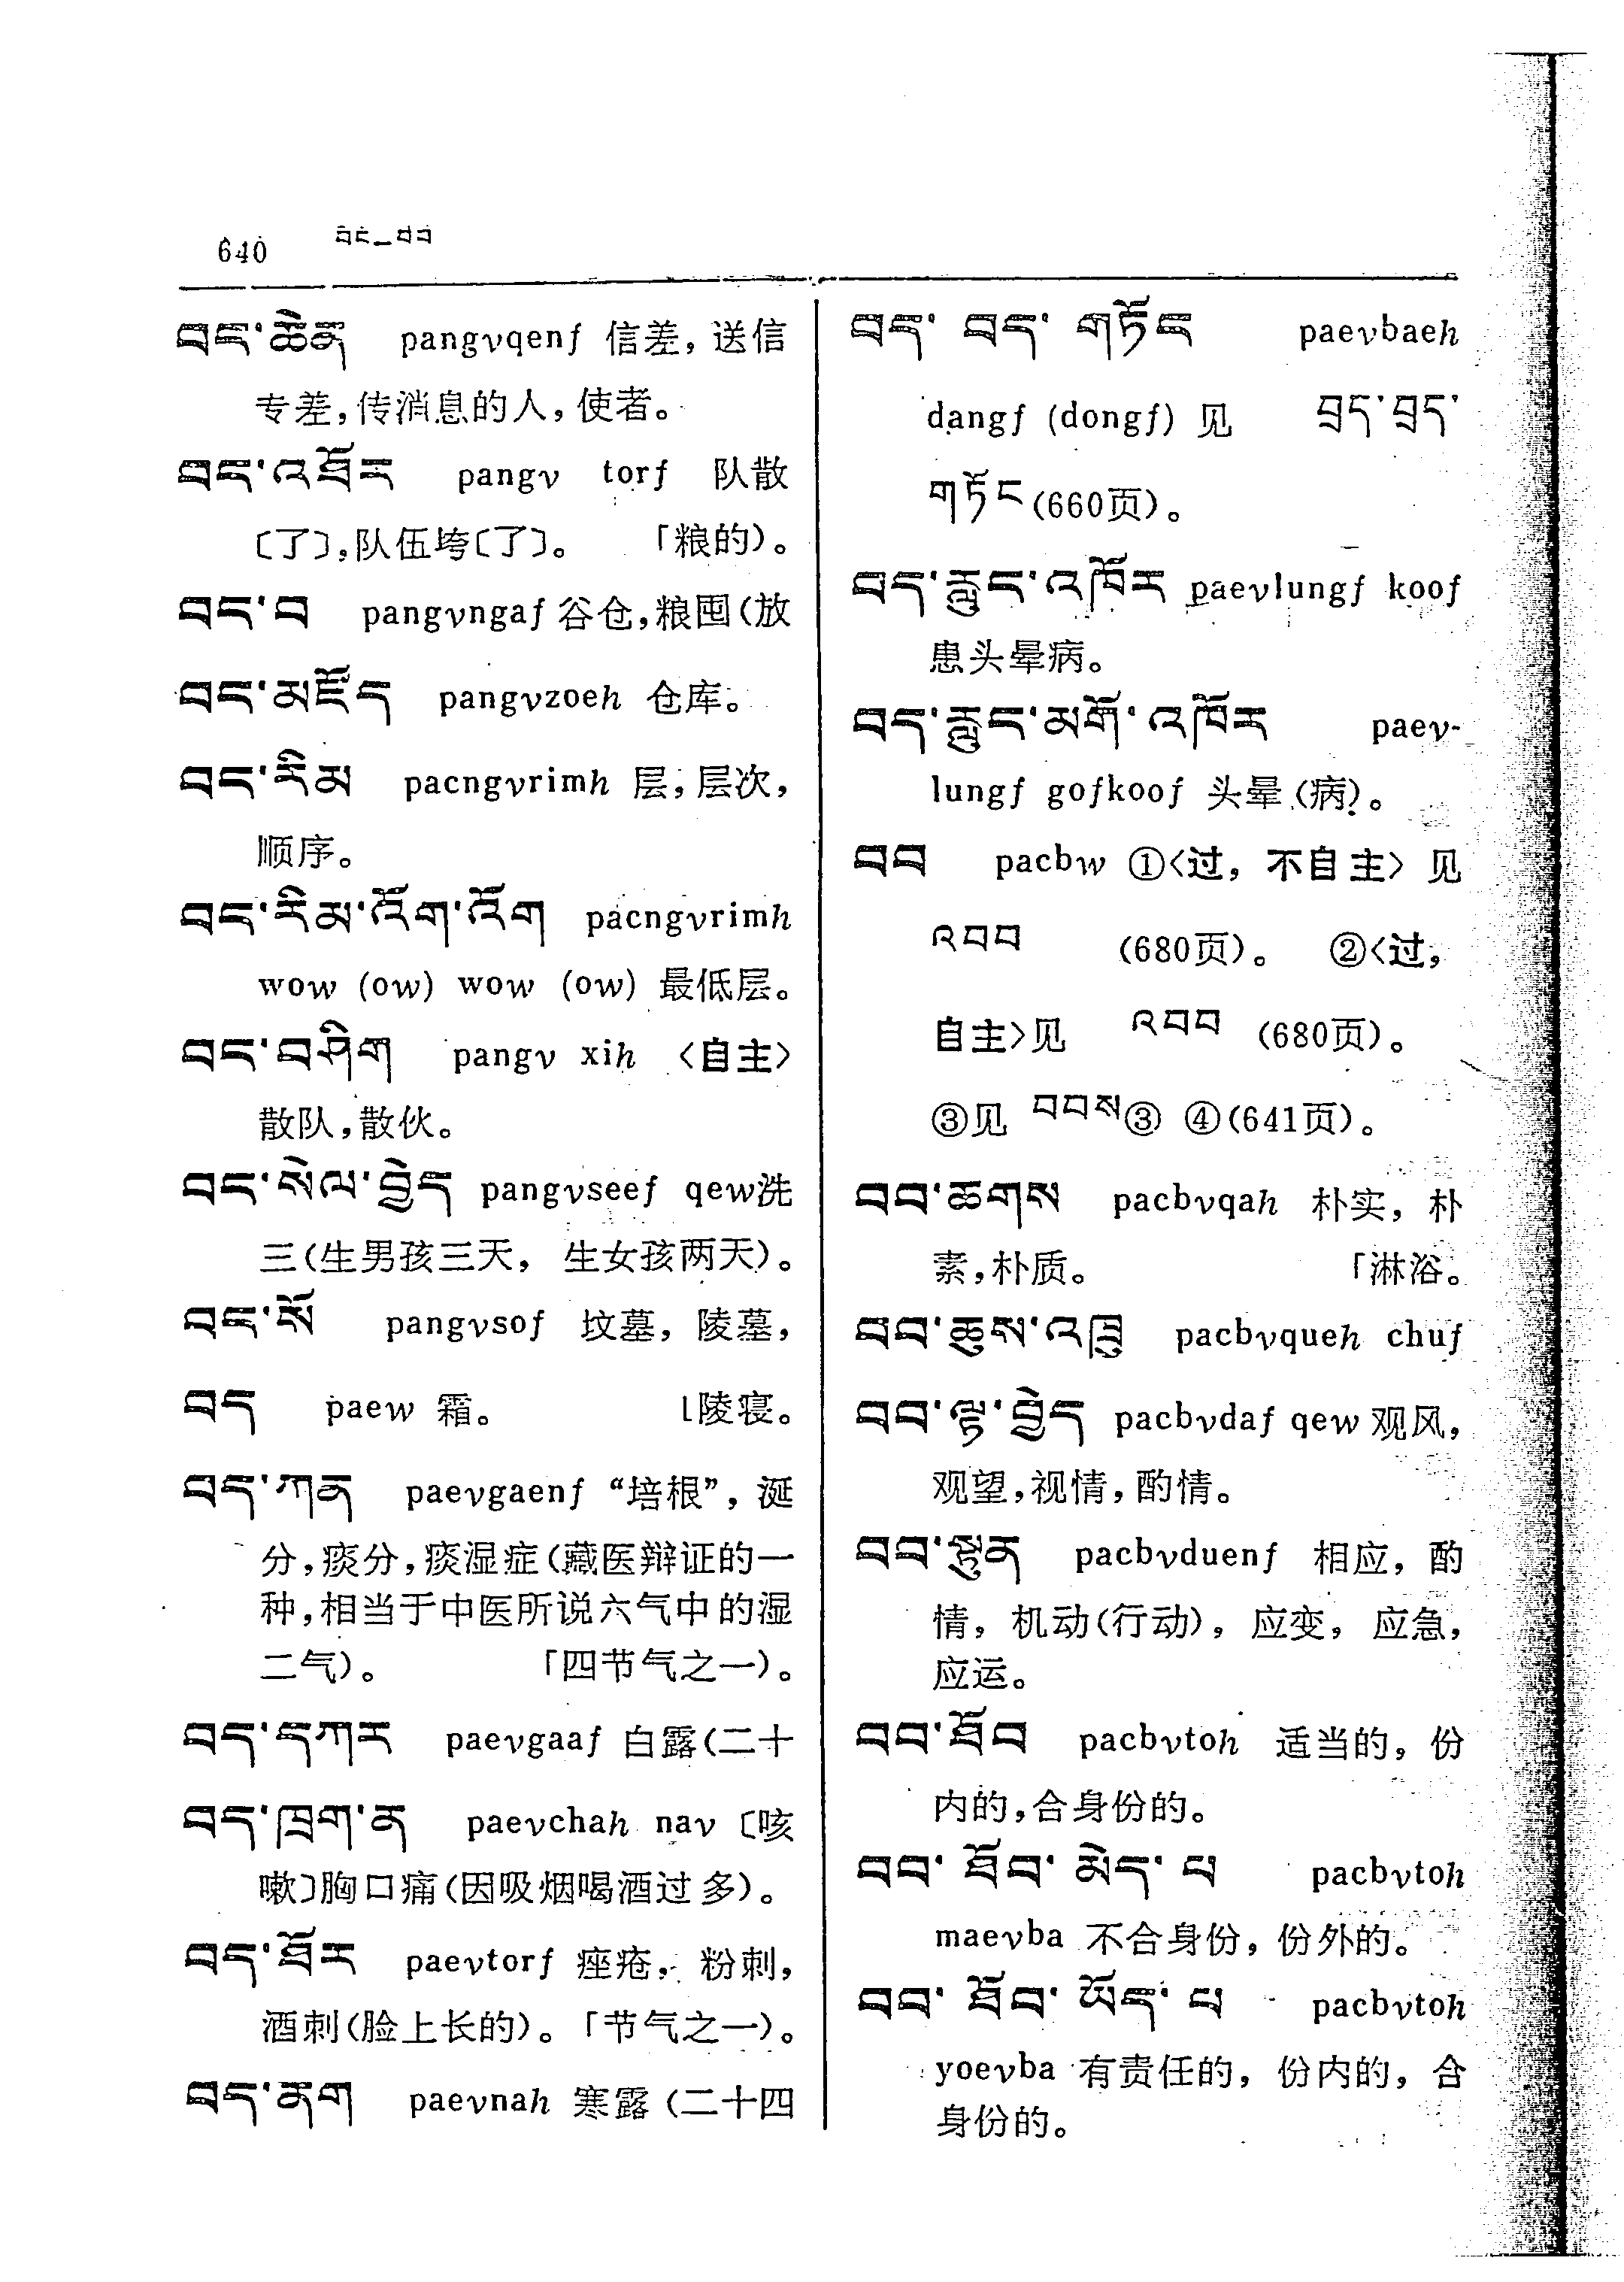 640 བང_བབ
བང་ཆེན pangvqenf 信差, 送信
专差,传消息的人,使者。
བང་འཐོར pangv torf 队散
〔了〕,队伍垮〔了〕。 「粮的)。
བང་བ pangvngaf 谷仓,粮囤(放
བང་མཛོད pangvzoeh 仓库。
བང་རིམ pacngvrimh 层,层次,
顺序。
བང་རིམ་འོག་འོག pacngvrimh
wow (ow) wow (ow) 最低层。
བང་བཤིག pangv xih 〈自主〉
散队,散伙。
བང་སེལ་བྱེད pangvseef qew洗
三(生男孩三天, 生女孩两天)。
བང་སོ pangvsof 坟墓, 陵墓,
བད paew 霜。 ⌊陵寝。
བད་ཀན paevgaenf “培根”, 涎
分,痰分,痰湿症(藏医辩证的一
种,相当于中医所说六气中的湿
二气)。 「四节气之一)。
བད་དཀར paevgaaf 白露(二十
བད་ཁྲག་ན paevchah nav 〔咳
嗽〕胸口痛(因吸烟喝酒过多)。
བད་ཐོར paevtorf 痤疮, 粉刺,
酒刺(脸上长的)。「节气之一)。
བད་ནག paevnah 寒露 (二十四
བད་ བད་ གཏོང paevbaeh
dangf (dongf) 见 བྲད་བྲད་
གཏོང(660页)。
བད་རླུང་འཁོར paevlungf koof
患头晕病。
བད་རླུང་མགོ་འཁོར paev-
lungf gofkoof 头晕 (病)。
བབ pacbw ①〈过, 不自主〉 见
འབབ (680页)。 ②〈过,
自主〉见 འབབ (680页)。
③见 བབས③ ④(641页)。
བབ་ཆགས pacbvqah 朴实, 朴
素,朴质。 「淋浴。
བབ་ཆུས་འཁྲུ pacbvqueh chuf
བབ་ལྟ་བྱེད pacbvdaf qew 观风,
观望,视情,酌情。
བབ་སྟུན pacbvduenf 相应, 酌
情, 机动(行动), 应变, 应急,
应运。
བབ་ཐོབ pacbvtoh 适当的, 份
内的,合身份的。
བབ་ ཐོབ་ མེད་ པ pacbvtoh
maevba 不合身份, 份外的。
བབ་ ཐོབ་ ཡོད་ པ pacbvtoh
yoevba 有责任的, 份内的, 合
身份的。